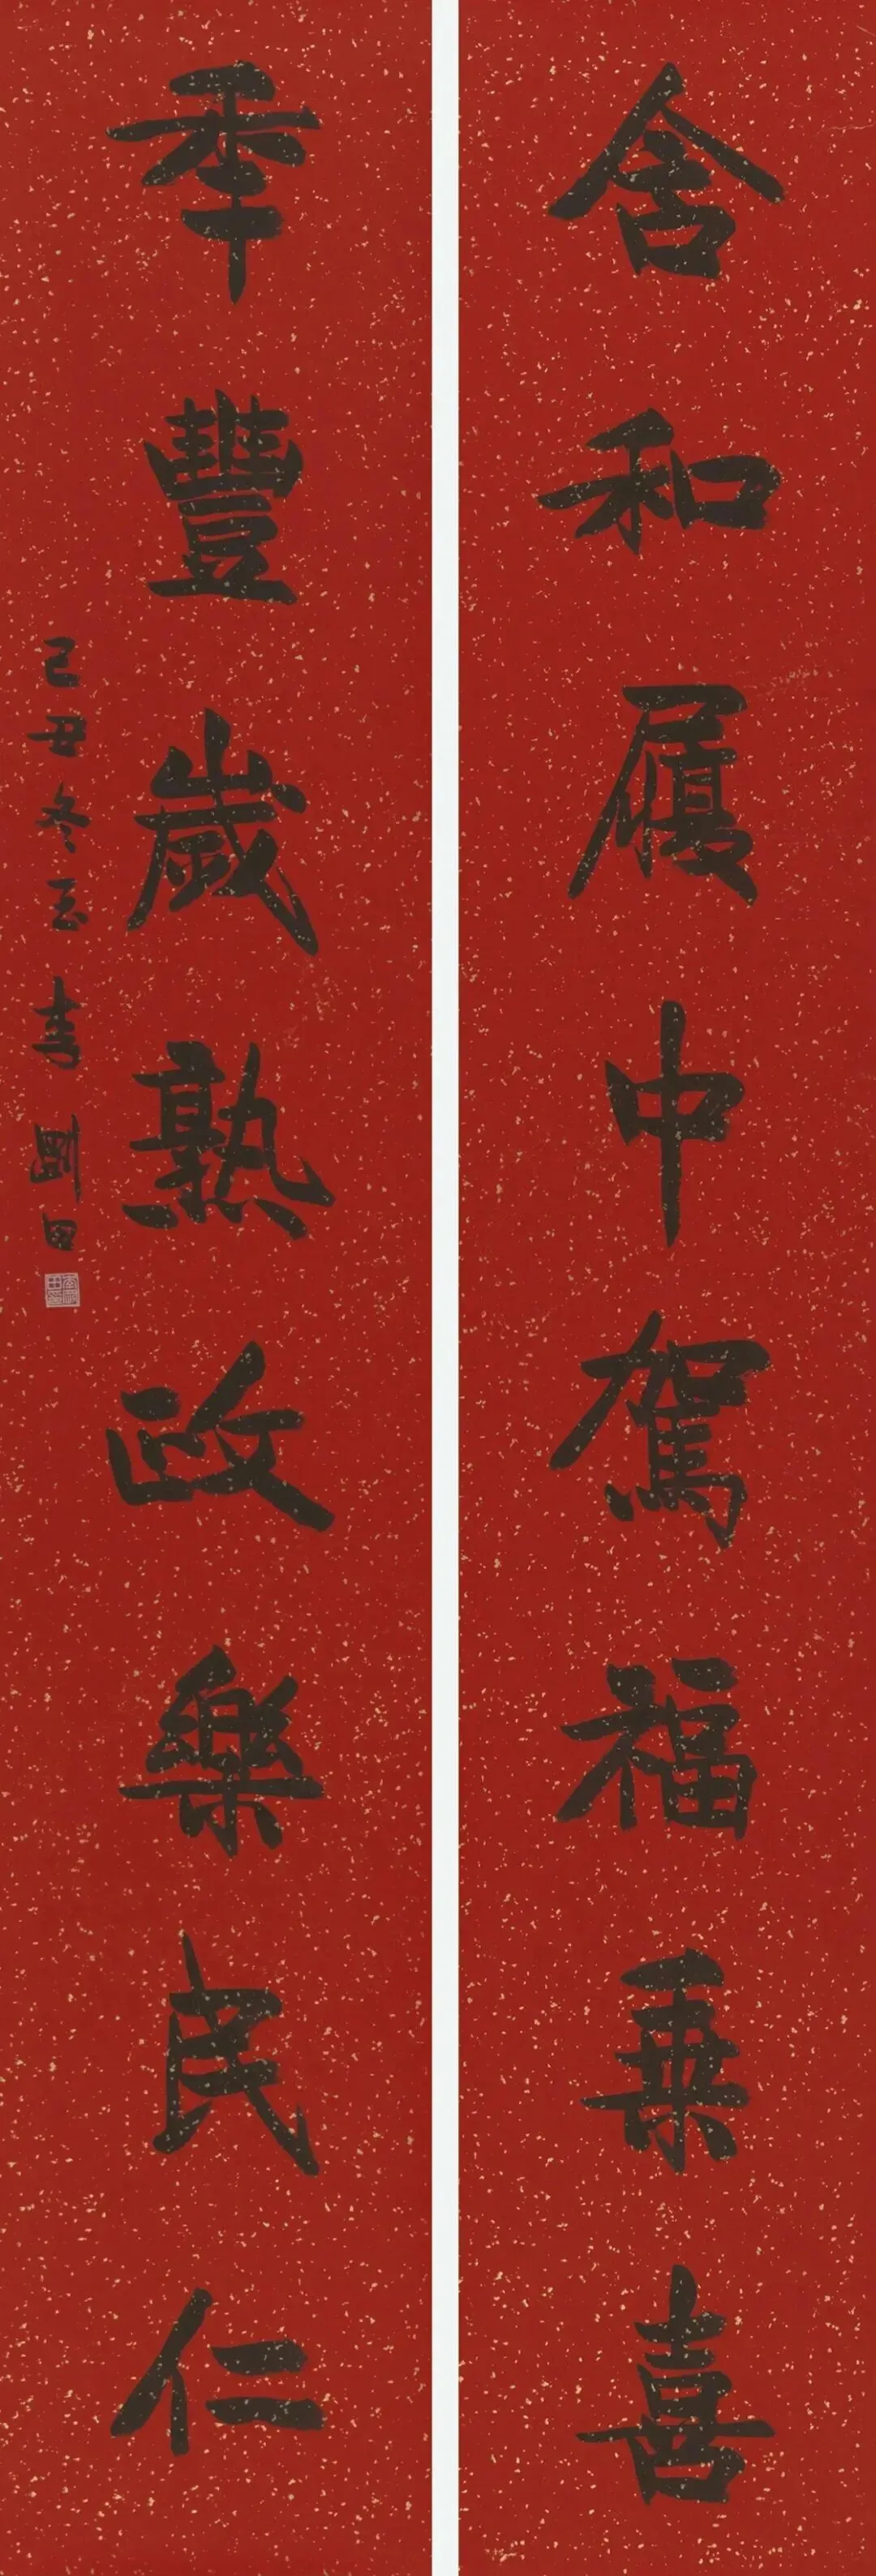 含和履中駕福乗喜
秊豐歲熟政樂民仁
己丑冬至李剛田